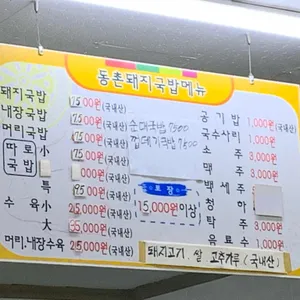 동촌돼지국밥메뉴
돼지국밥 7500원(국내산)
내장국밥 7500원(국내산)
머리국밥 7500원(국내산)
따로국밥 소 7500원(국내산)
특 9500원(국내산)
수육 소 25,000원(국내산)
대 35,000원(국내산)
머리.내장수육 25,000원(국내산)
순대국밥 7500
껍데기국밥 7500
포장
15,000원이상
공기밥 1,000원(국내산)
국수사리 1,000원
소주
맥주 3,000원
백세주
청하
탁주 3,000원
음료수 1,000원
돼지고기. 쌀 고추가루 (국내산)